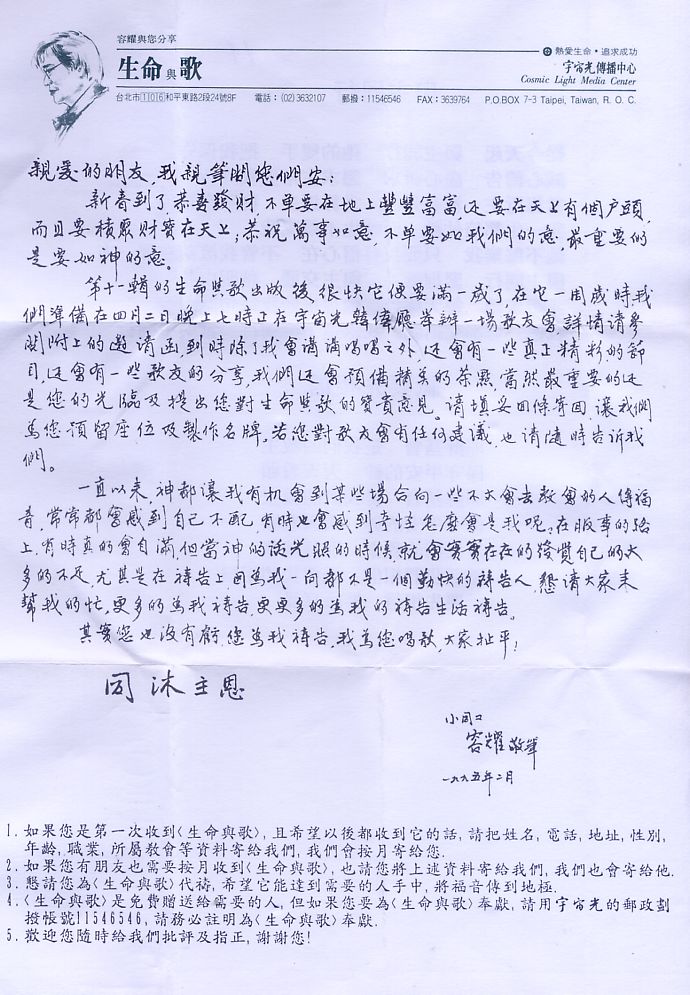 容耀與您分享
生命與歌
熱愛生命・追求成功
宇宙光傳播中心
Cosmic Light Media Center
台北市106和平東路2段24號8F 電話：(02)3632107 郵撥：11546546 FAX：3639764 P.O.BOX 7-3 Taipei, Taiwan, R. O. C.
親愛的朋友，我親筆問您們安：
新春到了恭喜發財，不單要在地上豐豐富富，还要在天上有個户頭，
而且要積聚財寶在天上；恭祝萬事如意，不單要如我們的意，最重要的
是要如神的意。
第十一輯的生命與歌出版後，很快它便要滿一歲了，在它一周歲時我
們準備在四月二日晚上七時正在宇宙光韓偉廳举辦一場歌友會，詳情请參
閱附上的邀請函，到時除了我會講講唱唱之外，还會有一些真正精彩的節
目，还會有一些歌友的分享，我們还會預備精美的茶點，當然最重要的还
是您的光臨及提出您對生命與歌的寶貴意見。请填妥回條寄回，讓我們
為您預留座位及製作名牌，若您對歌友會有任何建議，也請隨時告訴我
們。
一直以来，神都讓我有机會到某些場合向一些不大會去教會的人傳福
音，常常都會感到自己不配，有時也會感到奇怪怎麼會是我呢。在服事的路
上，有時真的會自滿，但當神的話光照的時候，就會實實在在的發覺自己的太
多的不足，尤其是在禱告上，因為我一向都不是一個勤快的禱告人，懇請大家来
幫我的忙，更多的為我禱告，更更多的為我的禱告生活禱告。
其實您也沒有虧，您為我禱告，我為您唱歌，大家扯平！
同沐主恩
小同工
容耀敬筆
一九九五年二月
1. 如果您是第一次收到〈生命與歌〉，且希望以後都收到它的話，請把姓名，電話，地址，性別，
年齡，職業，所屬教會等資料寄給我們，我們會按月寄給您．
2. 如果您有朋友也需要按月收到〈生命與歌〉，也請您將上述資料寄給我們，我們也會寄給他．
3. 懇請您為〈生命與歌〉代禱，希望它能達到需要的人手中，將福音傳到地極．
4. 〈生命與歌〉是免費贈送給需要的人，但如果您要為〈生命與歌〉奉獻，請用宇宙光的郵政劃
撥帳號11546546，請務必註明為〈生命與歌〉奉獻．
5. 歡迎您隨時給我們批評及指正，謝謝您！